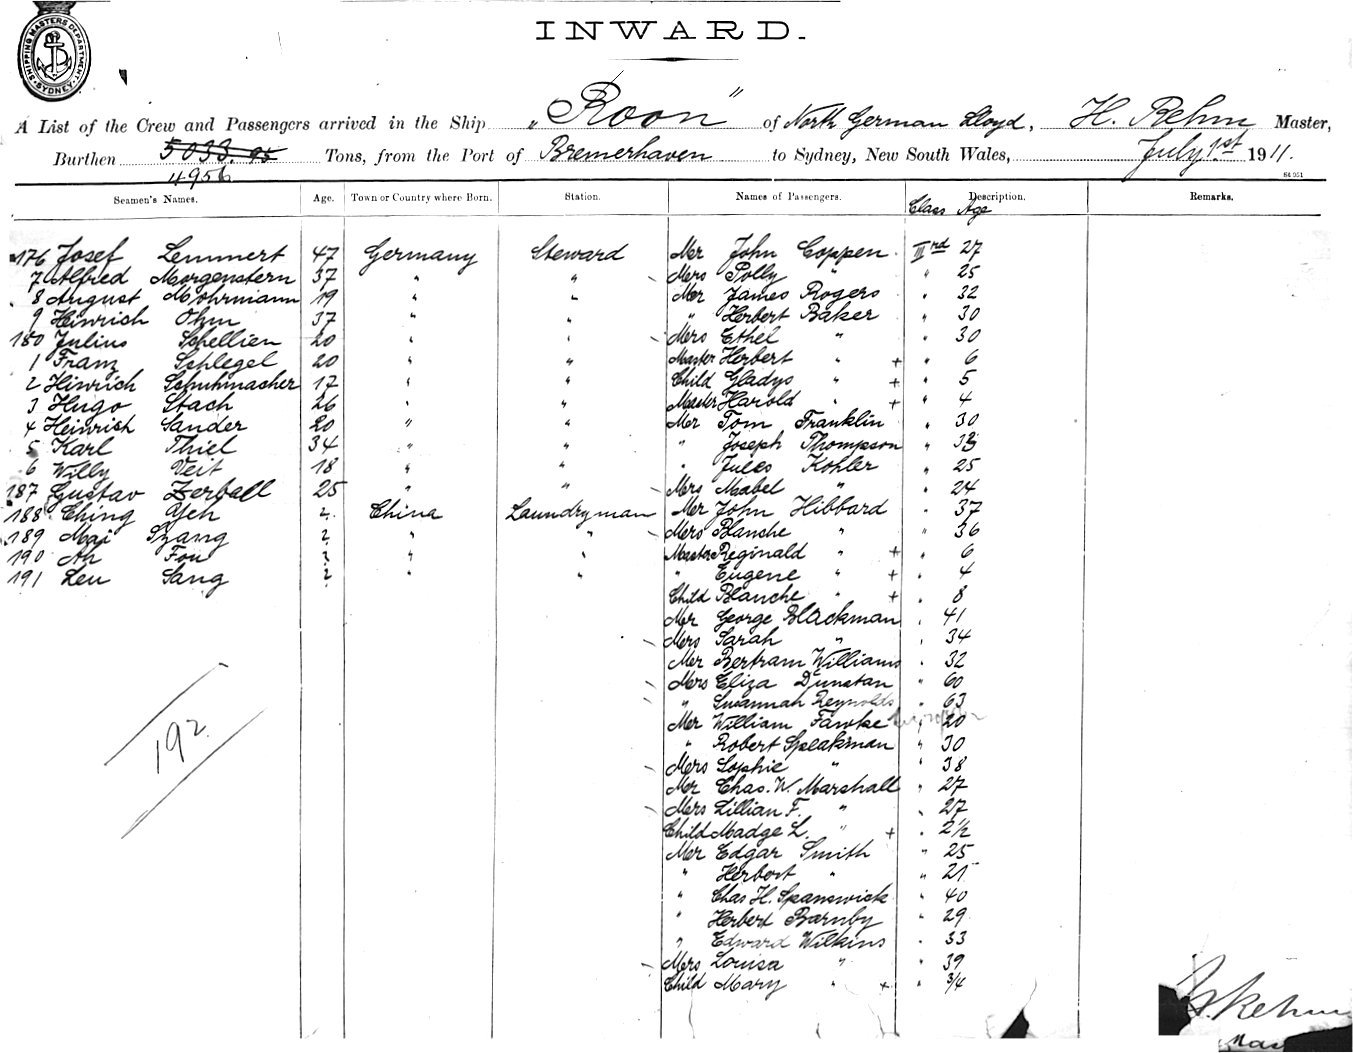 SHIPPING MASTERS DEPARTMENT SYDNEY
INWARD.
A List of the Crew and Passengers arrived in the Ship „Roon” of North German Lloyd, H. Rehm Master,
Burthen 5033.95 Tons, from the Port of Bremerhaven to Sydney, New South Wales, July 1st 1911.
4956
Seamen's Names. Age. Town or Country where Born. Station. Names of Passengers. Description. Remarks.
Class Age
176 Josef Lemmert 47 Germany Steward Mr John Coppen. IIIrd 27
7 Alfred Morgenstern 37 " " Mrs Polly " " 25
8 August Mohrmann 19 " " Mr James Rogers " 32
9 Hinrich Ohm 37 " " " Herbert Baker " 30
180 Julius Schellien 20 " " Mrs Ethel " " 30
1 Franz Schlegel 20 " " Master Herbert " + " 6
2 Hinrich Schuhmacher 17 " " Child Gladys " + " 5
3 Hugo Stach 26 " " Master Harold " + " 4
4 Heinrich Sander 20 " " Mr Tom Franklin " 30
5 Karl Thiel 34 " " " Joseph Thompson " 33
6 Willy Veit 18 " " " Jules Kohler " 25
187 Gustav Zerball 25 " " Mrs Mabel " " 24
188 Ching Yeh ? China Laundryman Mr John Hibbard " 37
189 Mai Szang ? " " Mrs Blanche " " 36
190 Ah Fou ? " " Master Reginald " + " 6
191 Leu Sang ? " " " Eugene " + " 4
Child Blanche " + " 8
Mr George Blackman " 41
Mrs Sarah " " 34
Mr Bertram Williams " 32
Mrs Eliza Dunstan " 60
" Susannah Reynolds " 63
Mr William Fawke 20
" Robert Speakman " 30
Mrs Sophie " " 38
Mr Chas. W. Marshall " 27
Mrs Lillian F. " " 27
Child Madge L. " + " 2½
Mr Edgar Smith " 25
" Herbert " " 21
" Chas H. Spanswick " 40
" Herbert Barnby " 29
" Edward Wilkins " 33
Mrs Louisa " " 39
Child Mary " + " 3/4
192
H. Rehm